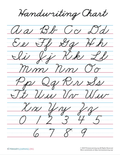 Handwriting Chart
Aa Bb Cc Dd
Ee Ff Gg Hh
Ii Jj Kk Ll
Mm Nn Oo
Pp Qq Rr Ss
Tt Uu Vv Ww
Xx Yy Zz
0 1 2 3 4 5
6 7 8 9